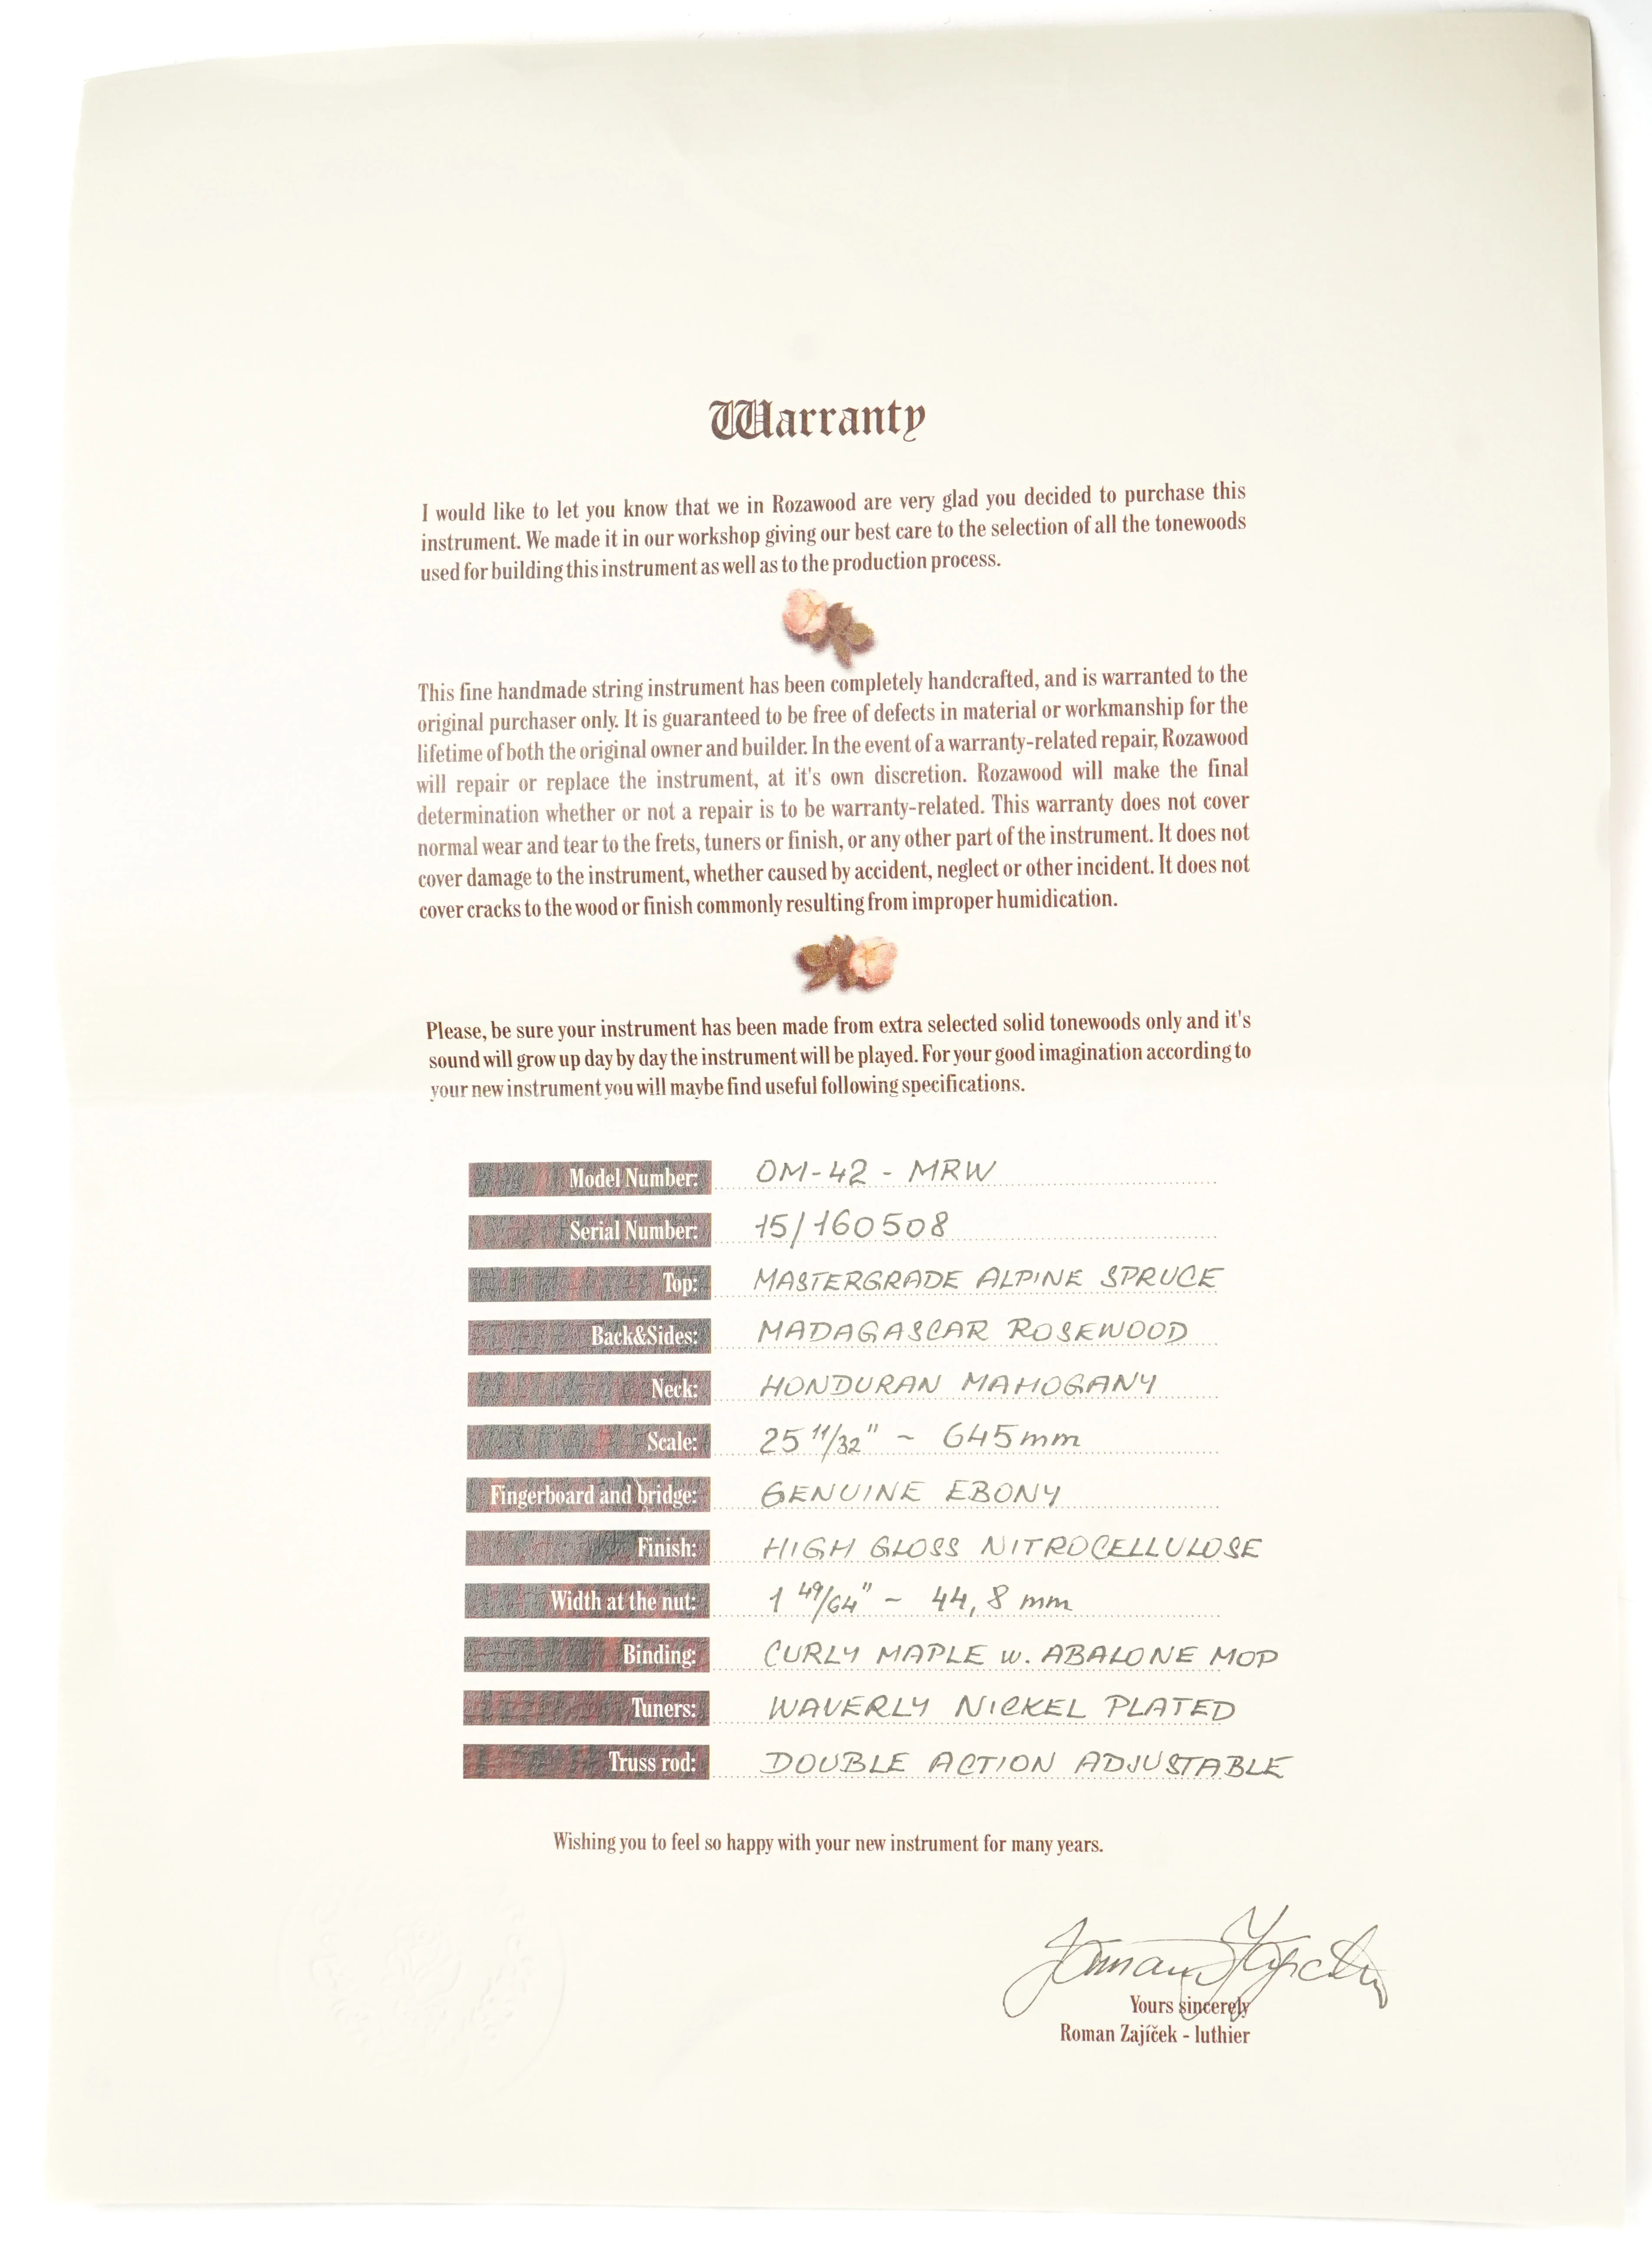 Warranty
I would like to let you know that we in Rozawood are very glad you decided to purchase this
instrument. We made it in our workshop giving our best care to the selection of all the tonewoods
used for building this instrument as well as to the production process.
This fine handmade string instrument has been completely handcrafted, and is warranted to the
original purchaser only. It is guaranteed to be free of defects in material or workmanship for the
lifetime of both the original owner and builder. In the event of a warranty-related repair, Rozawood
will repair or replace the instrument, at it's own discretion. Rozawood will make the final
determination whether or not a repair is to be warranty-related. This warranty does not cover
normal wear and tear to the frets, tuners or finish, or any other part of the instrument. It does not
cover damage to the instrument, whether caused by accident, neglect or other incident. It does not
cover cracks to the wood or finish commonly resulting from improper humidication.
Please, be sure your instrument has been made from extra selected solid tonewoods only and it's
sound will grow up day by day the instrument will be played. For your good imagination according to
your new instrument you will maybe find useful following specifications.
Model Number: OM-42 - MRW
Serial Number: 15/160508
Top: MASTERGRADE ALPINE SPRUCE
Back&Sides: MADAGASCAR ROSEWOOD
Neck: HONDURAN MAHOGANY
Scale: 25 11/32" ~ 645mm
Fingerboard and bridge: GENUINE EBONY
Finish: HIGH GLOSS NITROCELLULOSE
Width at the nut: 1 49/64" ~ 44,8 mm
Binding: CURLY MAPLE w. ABALONE MOP
Tuners: WAVERLY NICKEL PLATED
Truss rod: DOUBLE ACTION ADJUSTABLE
Wishing you to feel so happy with your new instrument for many years.
Yours sincerely
Roman Zajíček - luthier